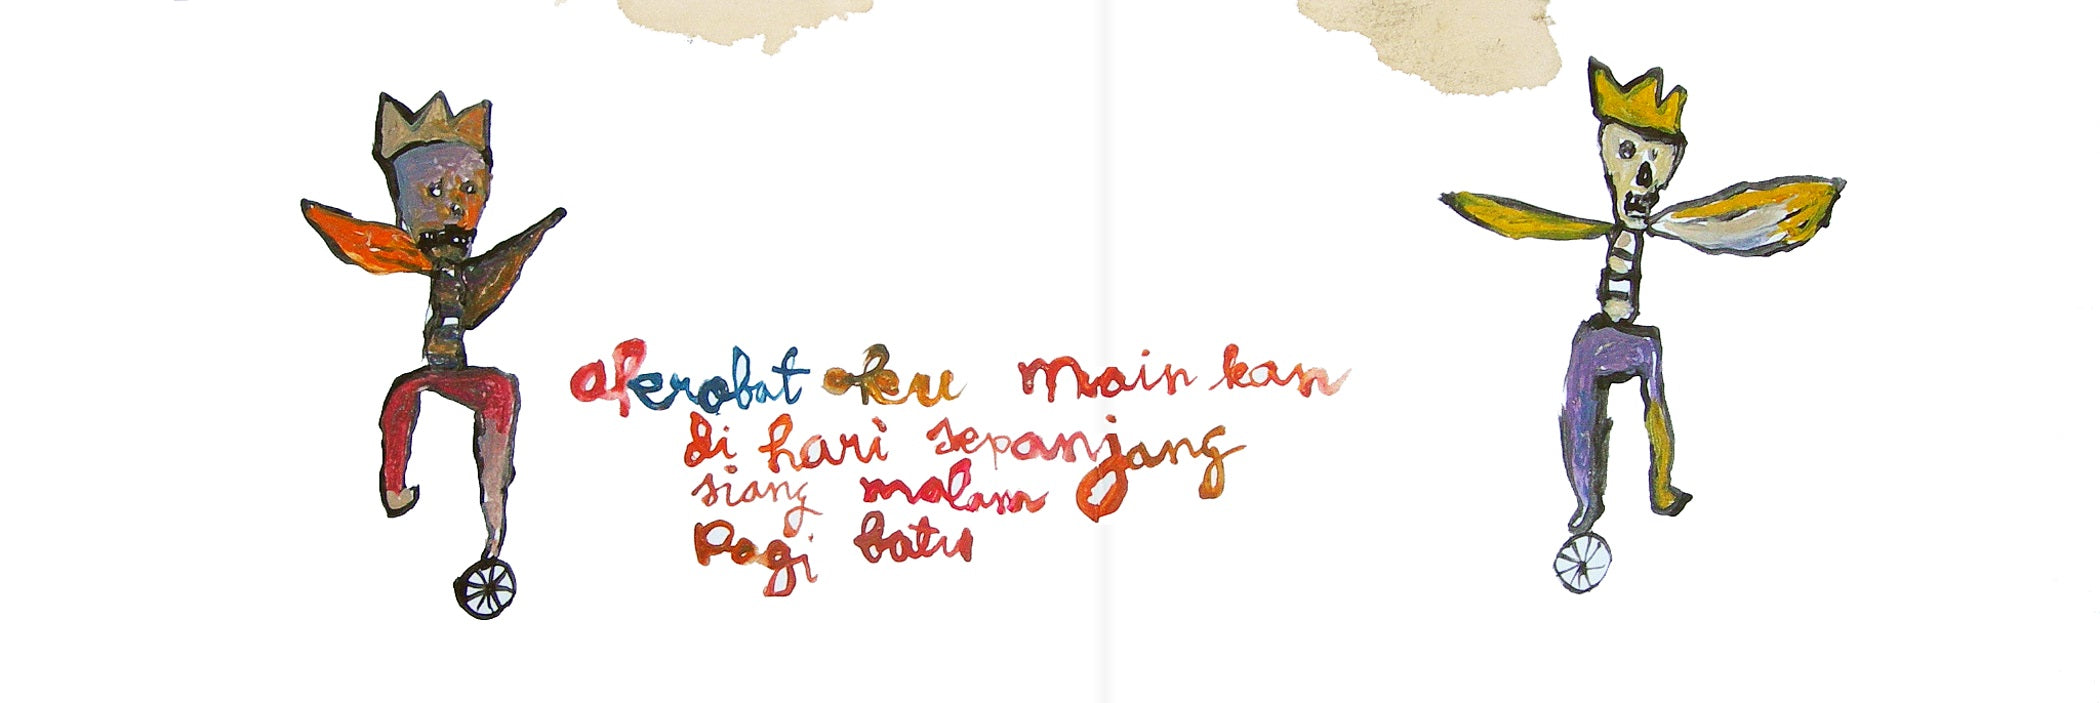 akrobat akeu main kan
di hari sepanjang
siang malam
Pagi batu